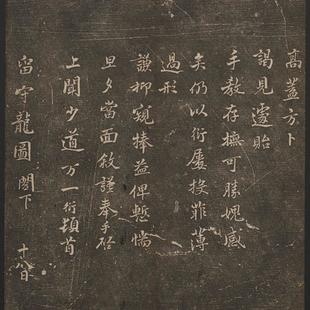 高蓋方卜
謁見遽貽
手教存撫可勝媿感
夫仍以衍屢投菲薄
過形
謙抑窺捧益俾慙惴
旦夕當面敘謹奉手啓
上聞少道万一衍頓首
留守龍圖閣下
十八日